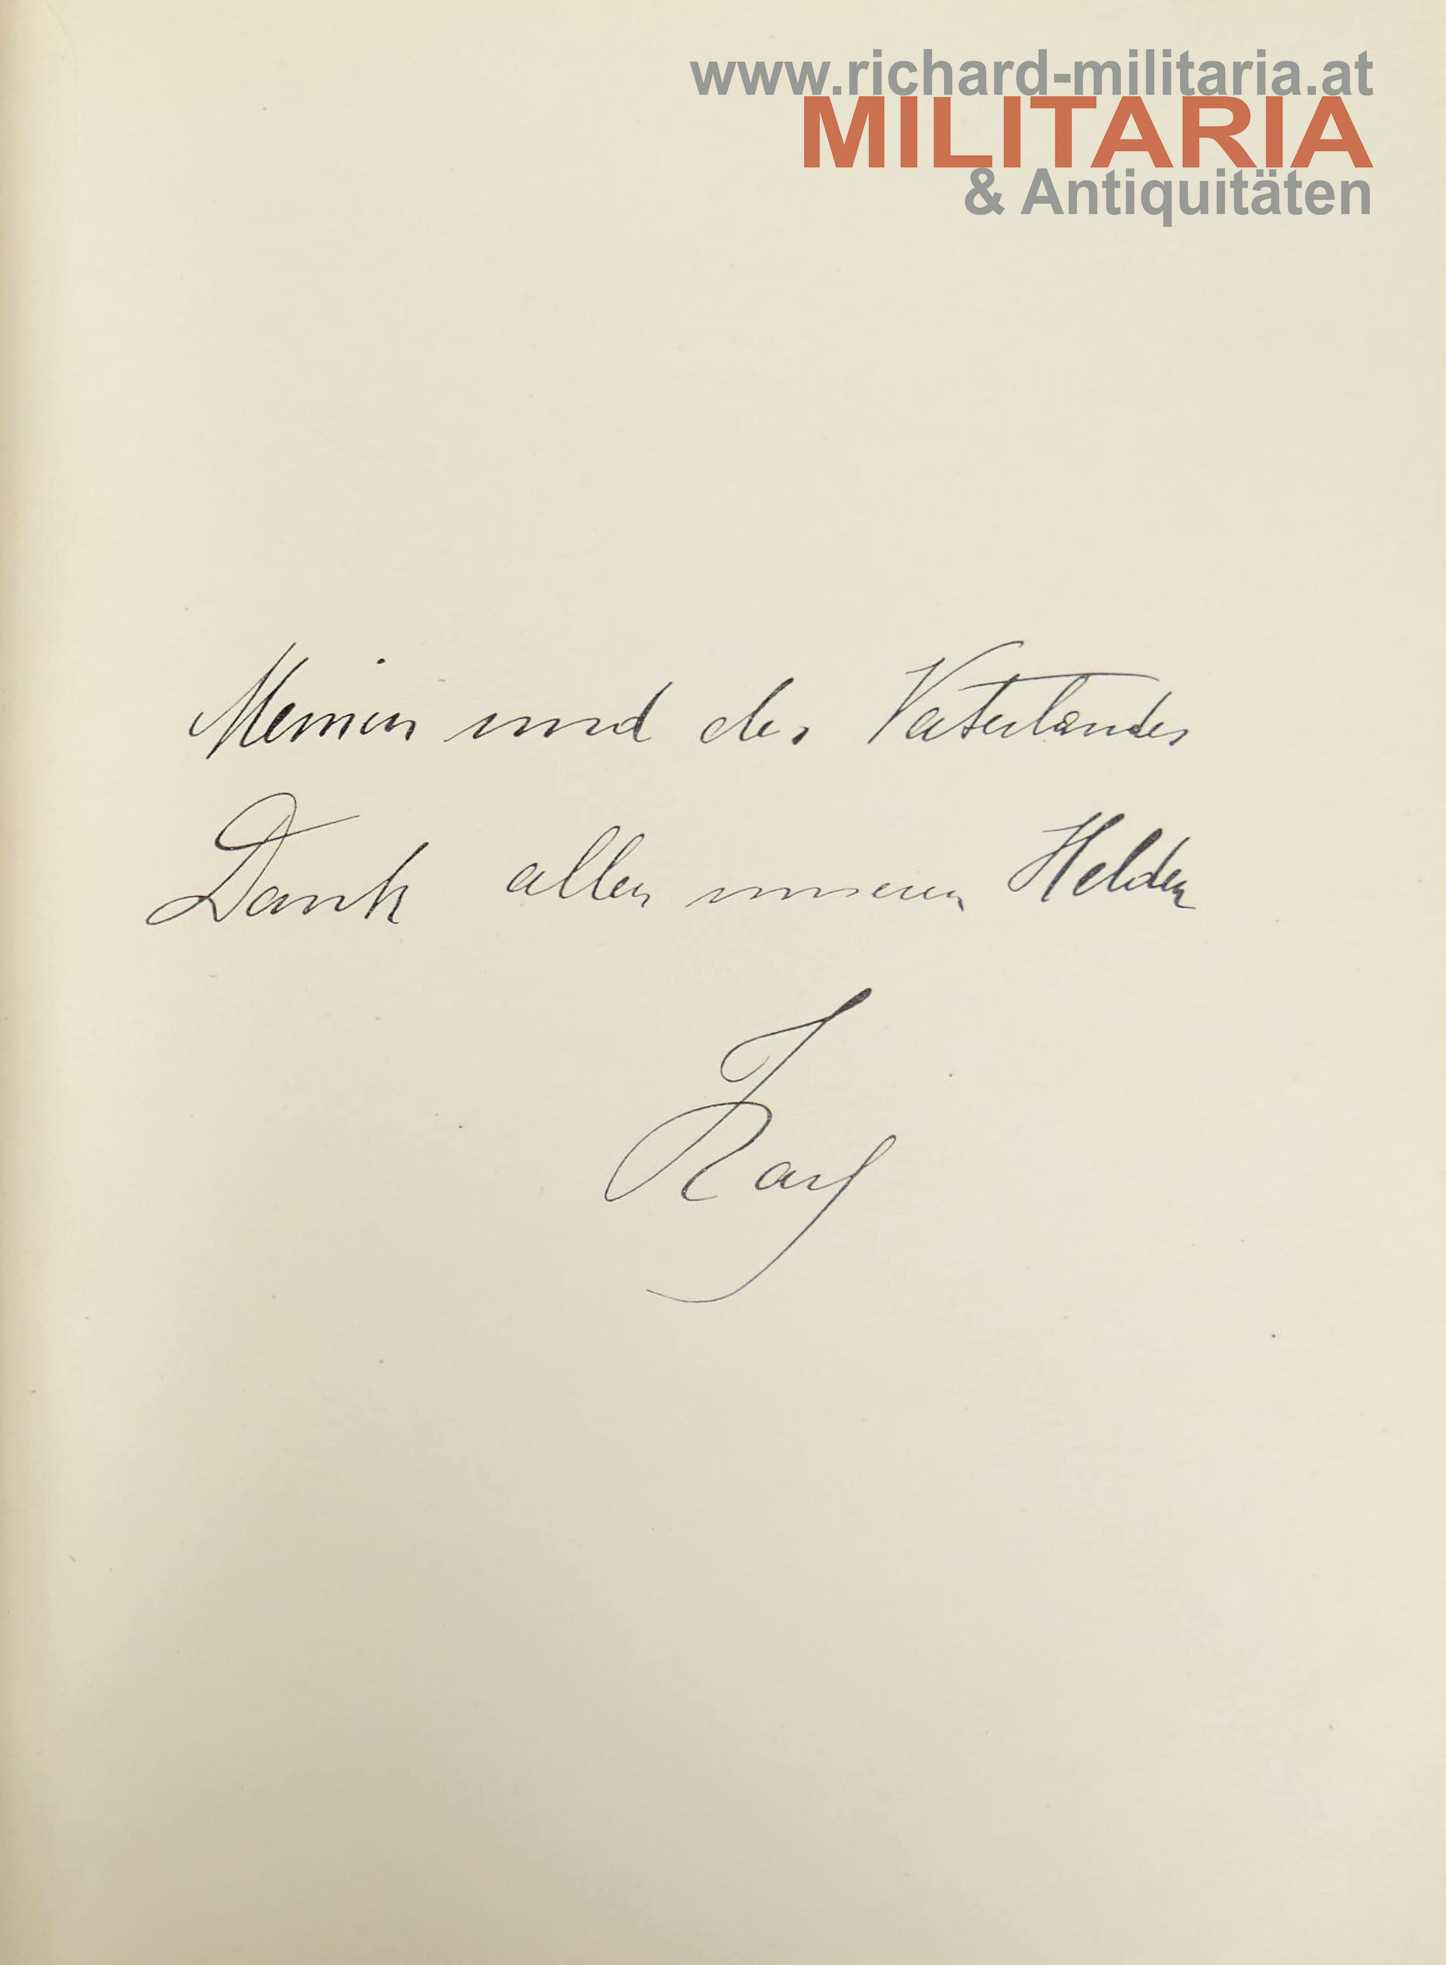 www.richard-militaria.at
MILITARIA
& Antiquitäten
Meinen und des Vaterlandes
Dank allen unseren Helden
Karl